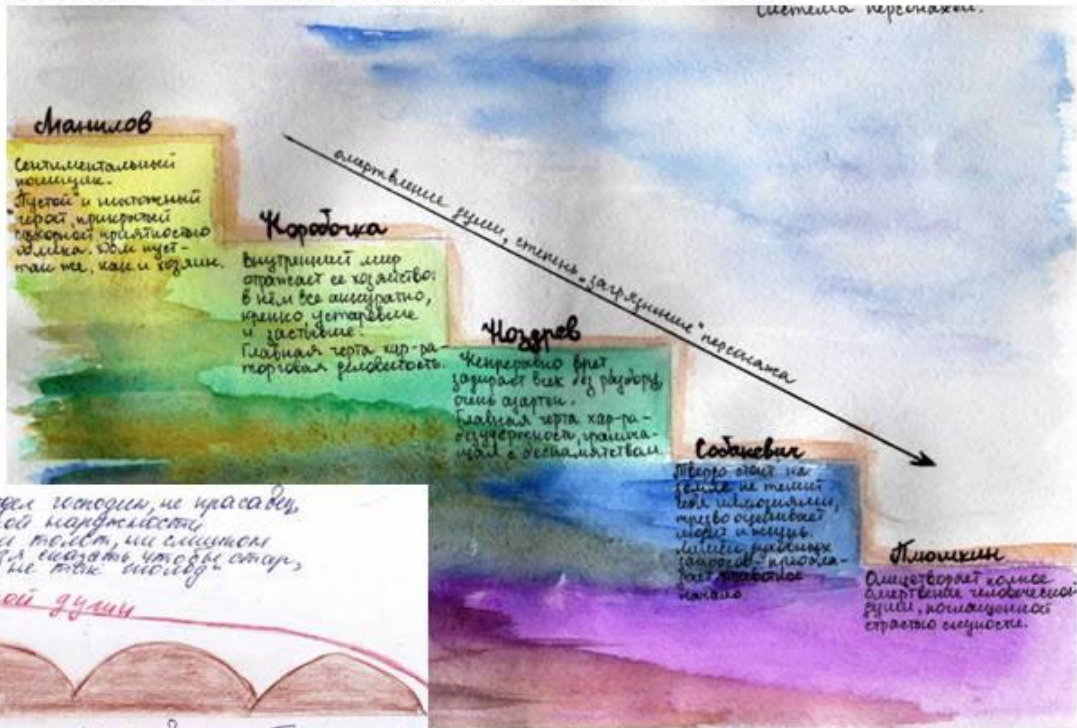 Система персонажей.
Манилов
Сентиментальный
помещик.
Пустой и ничтожный
герой, прикрытый
сахарной приятностью
облика. Дом пуст-
так же, как и хозяин.
омертвление души, степень "загрязнения" персонажа
Коробочка
Внутренний мир
отражает её хозяйство:
в нём все аккуратно,
крепко устаревшие
и застывшие.
Главная черта хар-ра-
торговая деловитость.
Ноздрев
Непрерывно врет
задирает всех без разбору,
очень азартен.
Главная черта хар-ра-
безудержность, гранича-
щая с беспамятством.
Собакевич
Твердо стоит на
земле не тешит
себя иллюзиями,
трезво оценивает
людей и жизнь.
Лишен духовных
запросов - преобла-
дает животное
начало.
Плюшкин
Олицетворяет полное
омертвение человеческой
души, поглащенной
страстью скупости.
господин, не красавец,
ой наружности
толст, ни слишком
сказать чтобы стар,
не так молод"
ой души